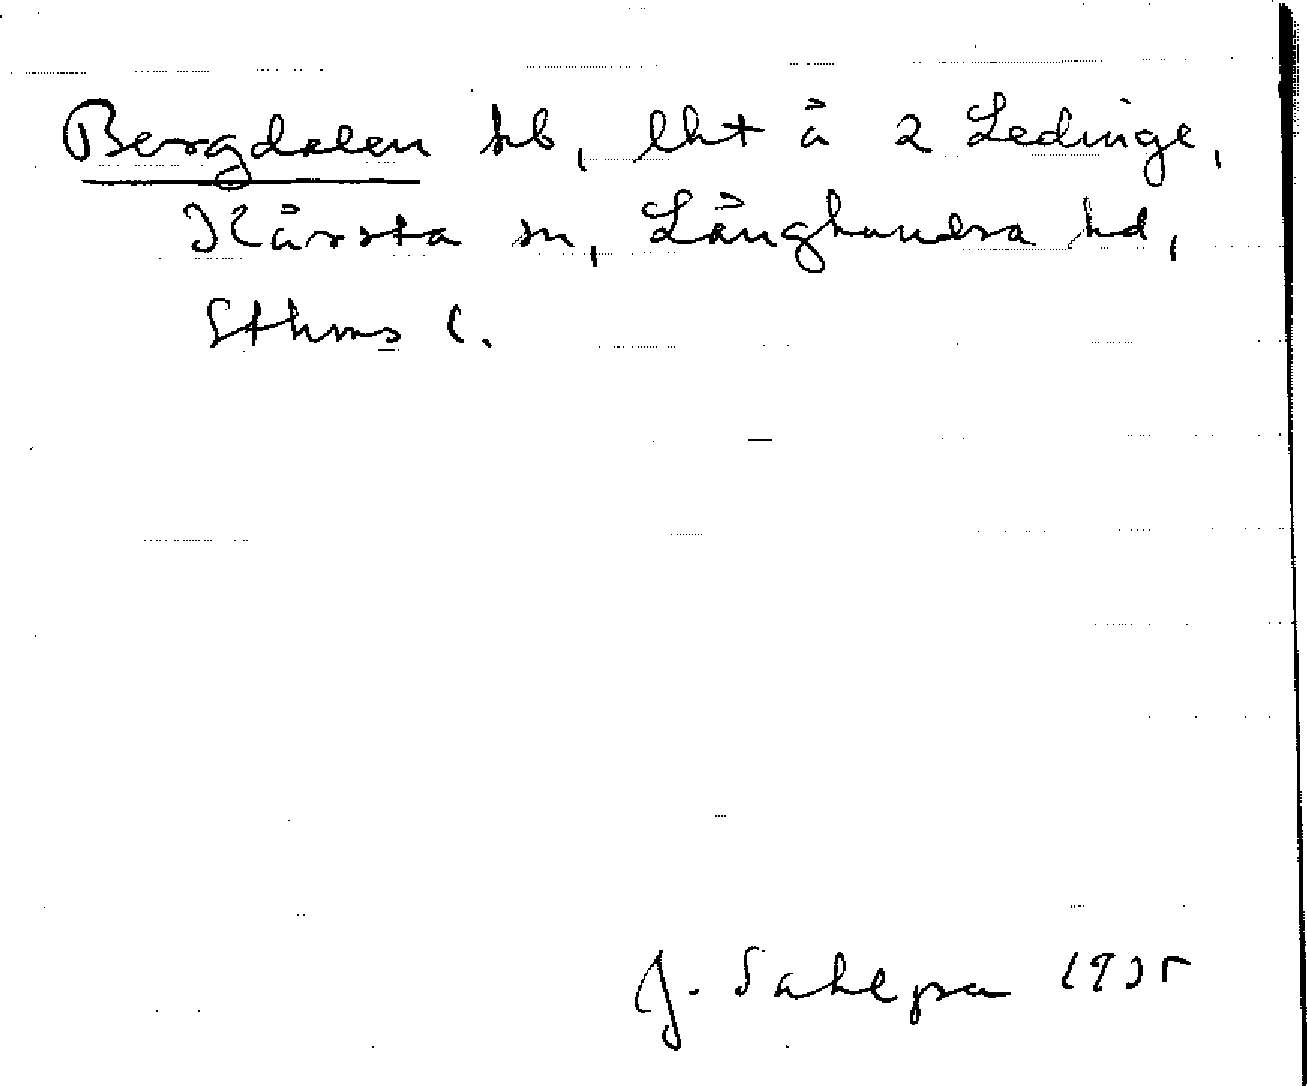 Bergdalen hb, lht å 2 Ledinge,
Kårsta sn, Långhundra hd,
Sthms l.
J. Sahlgren 1935